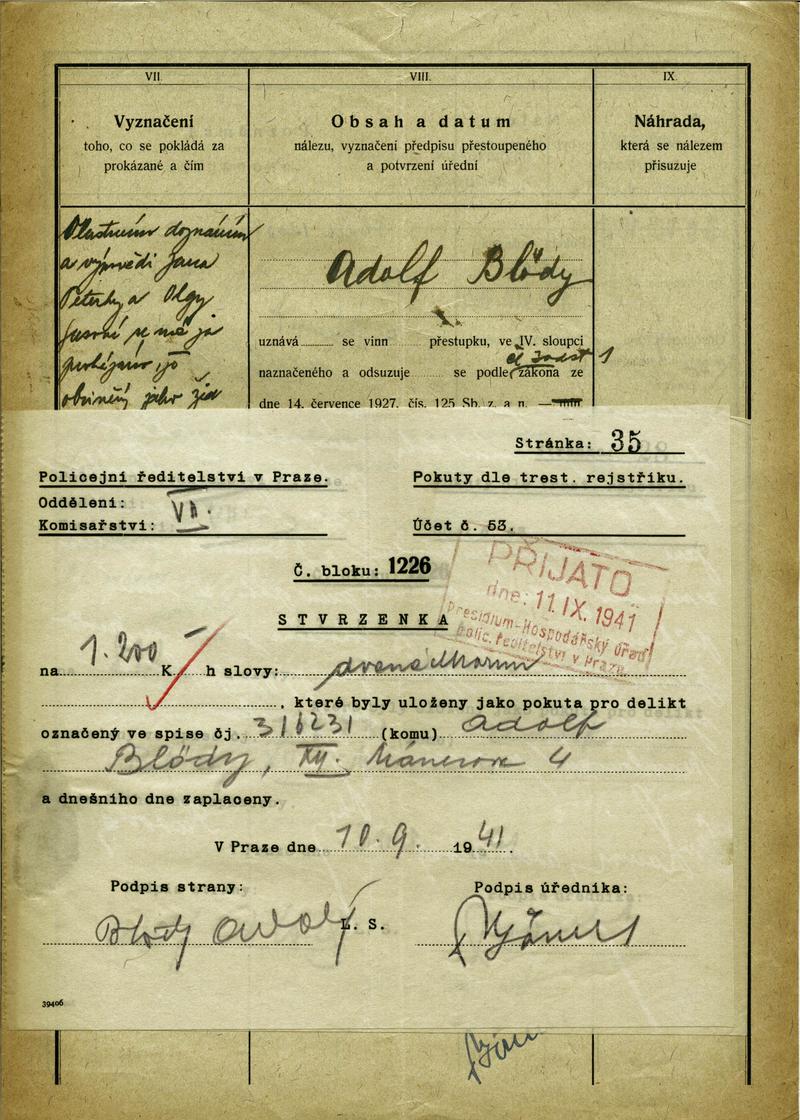 VII.
VIII.
IX.
Vyznačení
toho, co se pokládá za
prokázané a čím
Obsah a datum
nálezu, vyznačení předpisu přestoupeného
a potvrzení úřední
Náhrada,
která se nálezem
přisuzuje
Vlastním doznáním
a výpovědí Jana
a Olgy
se má za
obviněný jako žid
Adolf Blödy
uznává se vinn přestupku, ve IV. sloupci
naznačeného a odsuzuje se podle zákona ze
dne 14. července 1927, čís. 125 Sb. z. a n.
Stránka: 35
Policejní ředitelství v Praze.
Pokuty dle trest. rejstříku.
Oddělení: VI.
Komisařství:
Účet č. 53.
Č. bloku: 1226
PŘIJATO
dne: 11. IX. 1941
Presidium-Hospodářský úřad
polic. ředitelství v Praze
STVRZENKA
na 1.200 K h slovy: dvanáctkorun
, které byly uloženy jako pokuta pro delikt
označený ve spise čj. 316231 (komu) Adolf
Blödy, XII. Mánesova 4
a dnešního dne zaplaceny.
V Praze dne 10.9. 1941.
Podpis strany:
Podpis úředníka:
Blödy Adolf
L. S.
39406